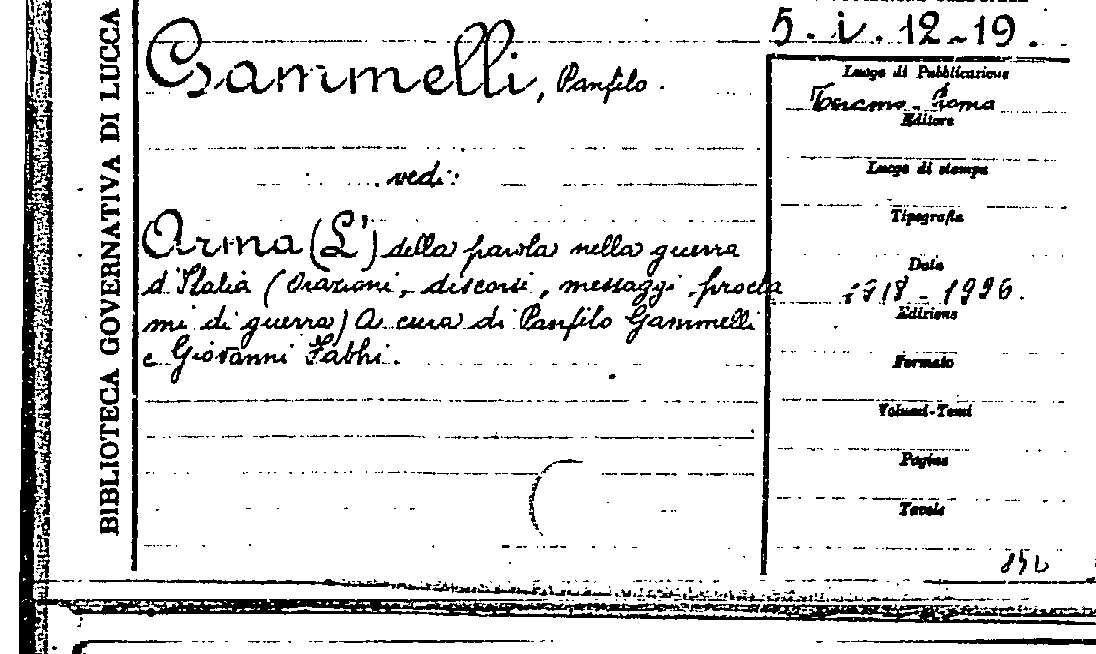 BIBLIOTECA GOVERNATIVA DI LUCCA
5. i. 12-19.
Gammelli, Panfilo.
vedi:
Arma (L') della parola nella guerra
d'Italia (Orazioni, discorsi, messaggi, procla
mi di guerra) A cura di Panfilo Gammelli
e Giovanni Fabbi.
Luogo di Pubblicazione
Teramo - Roma
Editore
Luogo di stampa
Tipografia
Data
1918 - 1926.
Edizione
Formato
Volumi-Tomi
Pagine
Tavole